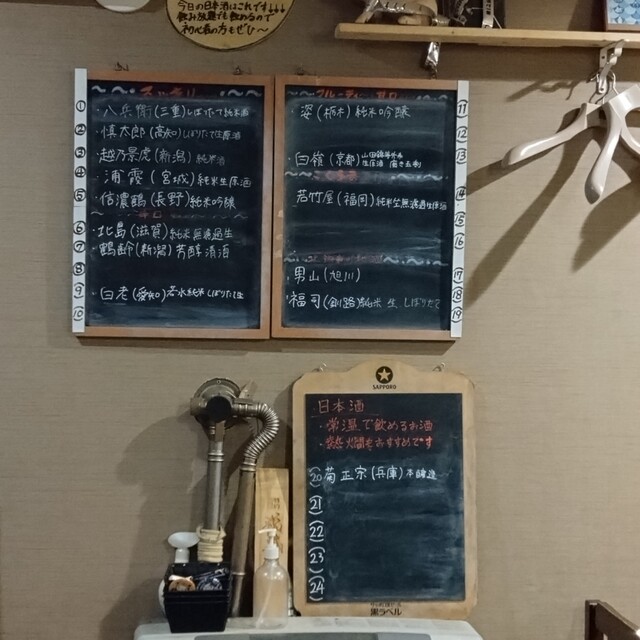 今日の日本酒はこれです↓↓↓
飲み放題でも飲めるので
初心者の方もぜひ〜
スッキリ
① 八兵衛(三重)しぼりたて純米酒
② 慎太郎(高知)しぼりたて生原酒
③ 越乃景虎(新潟)純米酒
④ 浦霞(宮城)純米生原酒
⑤ 信濃鶴(長野)純米吟醸
⑥ 北島(滋賀)純米無濾過生
⑦ 鶴齢(新潟)芳醇清酒
⑧
⑨ 白老(愛知)若水純米しぼりたて生
⑩
フルーティー 甘口
⑪ 姿(栃木)純米吟醸
⑫
⑬ 白嶺(京都)
⑭
⑮ 若竹屋(福岡)純米無濾過生原酒
⑯
⑰ 男山(旭川)
⑱ 福司(釧路)純米 生 しぼりたて
⑲
SAPPORO
日本酒
・常温で飲めるお酒
・熱燗もおすすめです
⑳ 菊正宗(兵庫)本醸造
㉑
㉒
㉓
㉔
黒ラベル